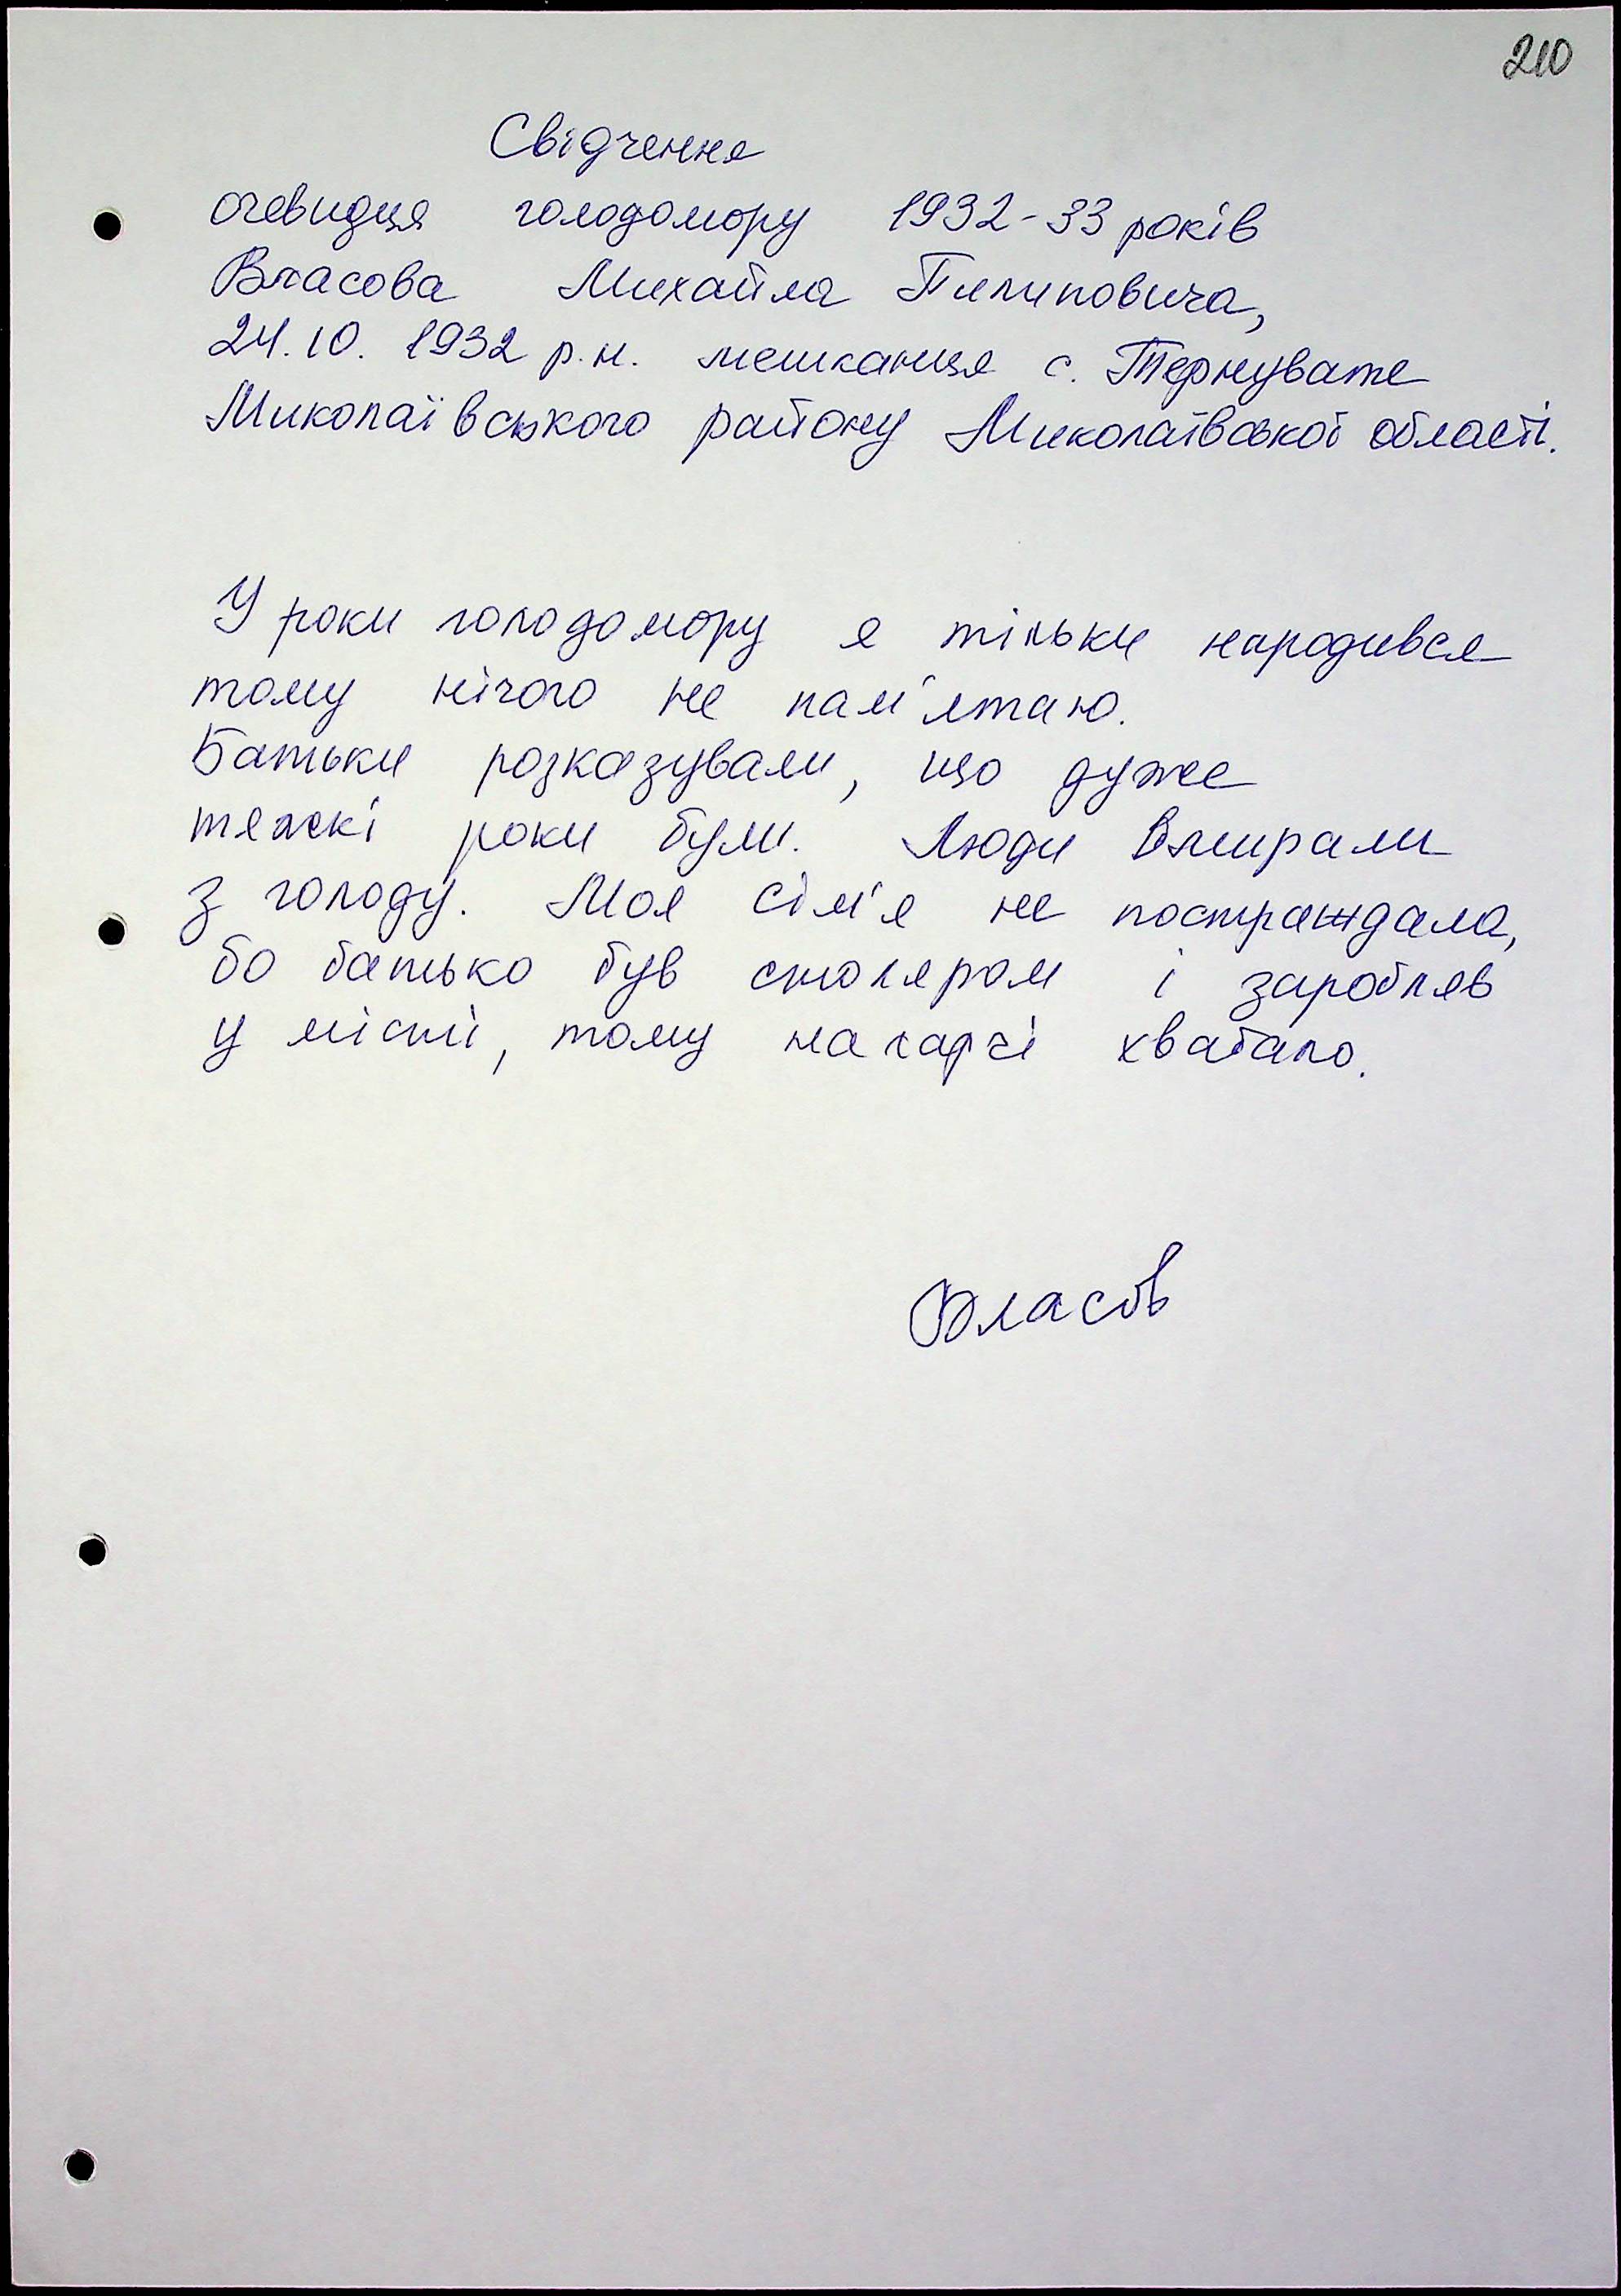 210
Свідчення
очевидця голодомору 1932-33 років
Власова Михайла Пилиповича,
24.10.1932 р.н. мешканця с. Тернувате
Миколаївського району Миколаївської області.
У роки голодомору я тільки народився
тому нічого не пам'ятаю.
Батьки розказували, що дуже
тяжкі роки були. Люди вмирали
з голоду. Моя сім'я не постраждала,
бо батько був столяром і заробляв
у місті, тому на харчі хватало.
Власов